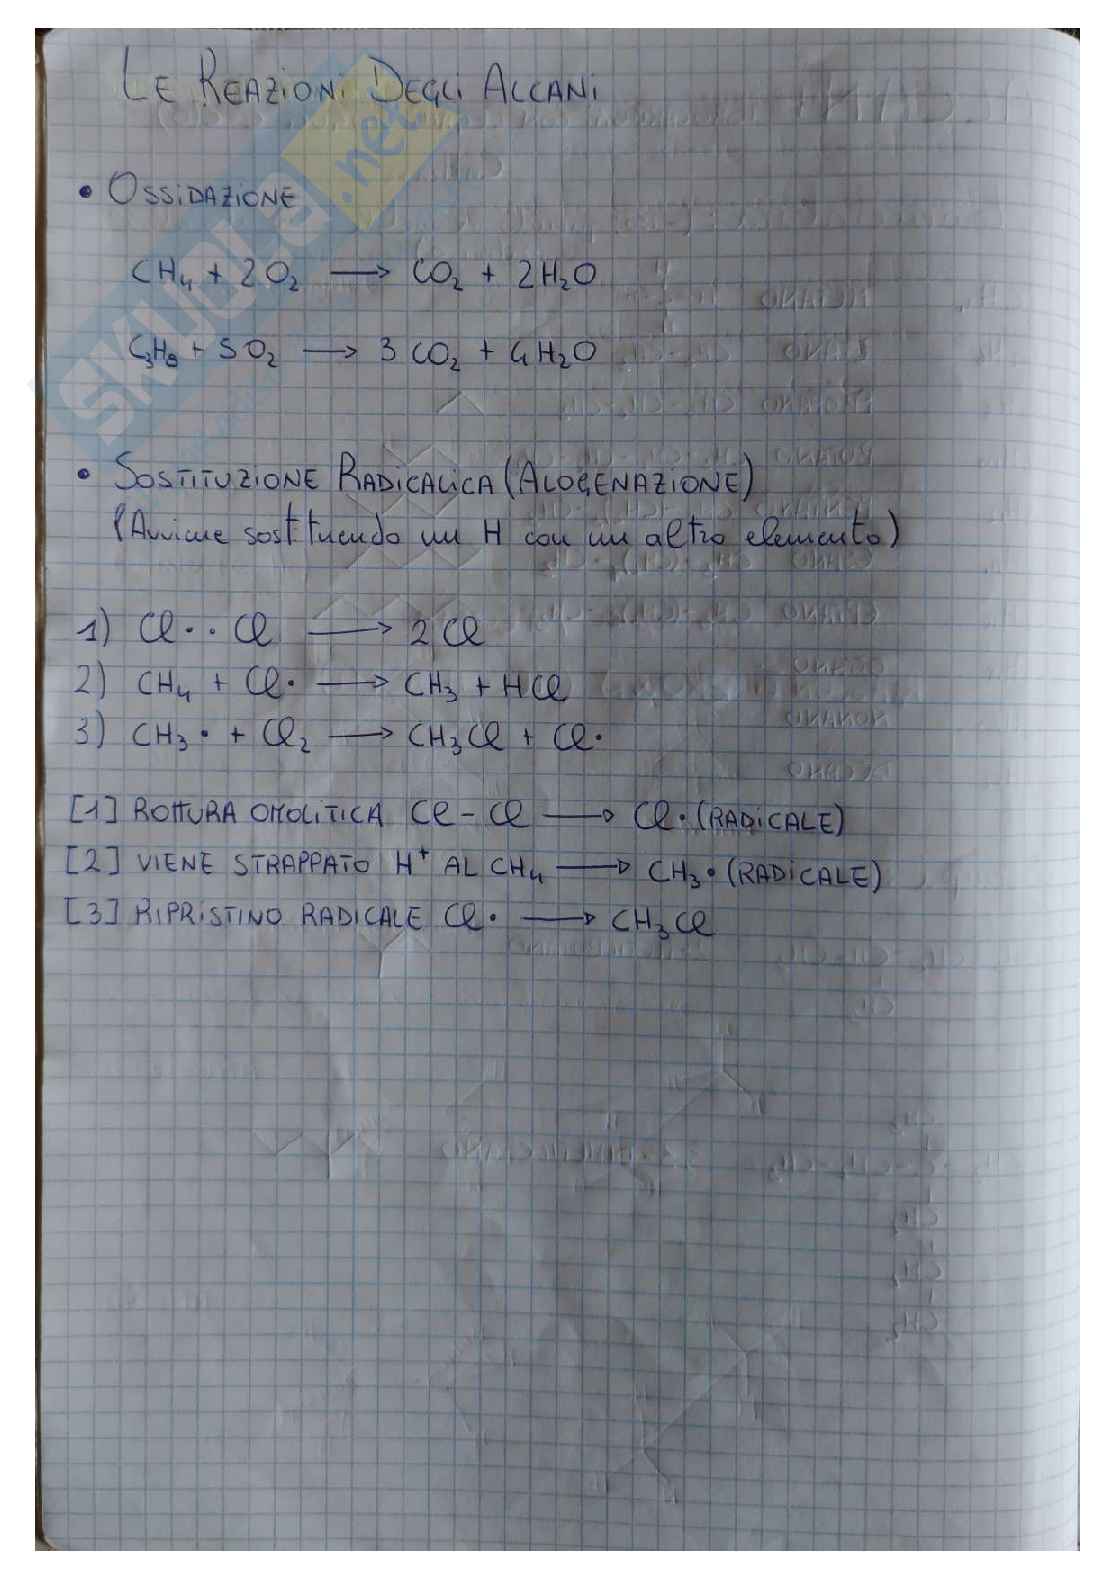 LE REAZIONI DEGLI ALCANI
• OSSIDAZIONE
CH₄ + 2O₂ → CO₂ + 2H₂O
C₃H₈ + 5O₂ → 3CO₂ + 4H₂O
• SOSTITUZIONE RADICALICA (ALOGENAZIONE)
(Avviene sostituendo un H con un altro elemento)
1) Cl· · Cl → 2Cl
2) CH₄ + Cl· → CH₃ + HCl
3) CH₃· + Cl₂ → CH₃Cl + Cl·
[1] ROTTURA OMOLITICA Cl - Cl → Cl· (RADICALE)
[2] VIENE STRAPPATO H⁺ AL CH₄ → CH₃· (RADICALE)
[3] RIPRISTINO RADICALE Cl· → CH₃Cl
SKUOLa.net